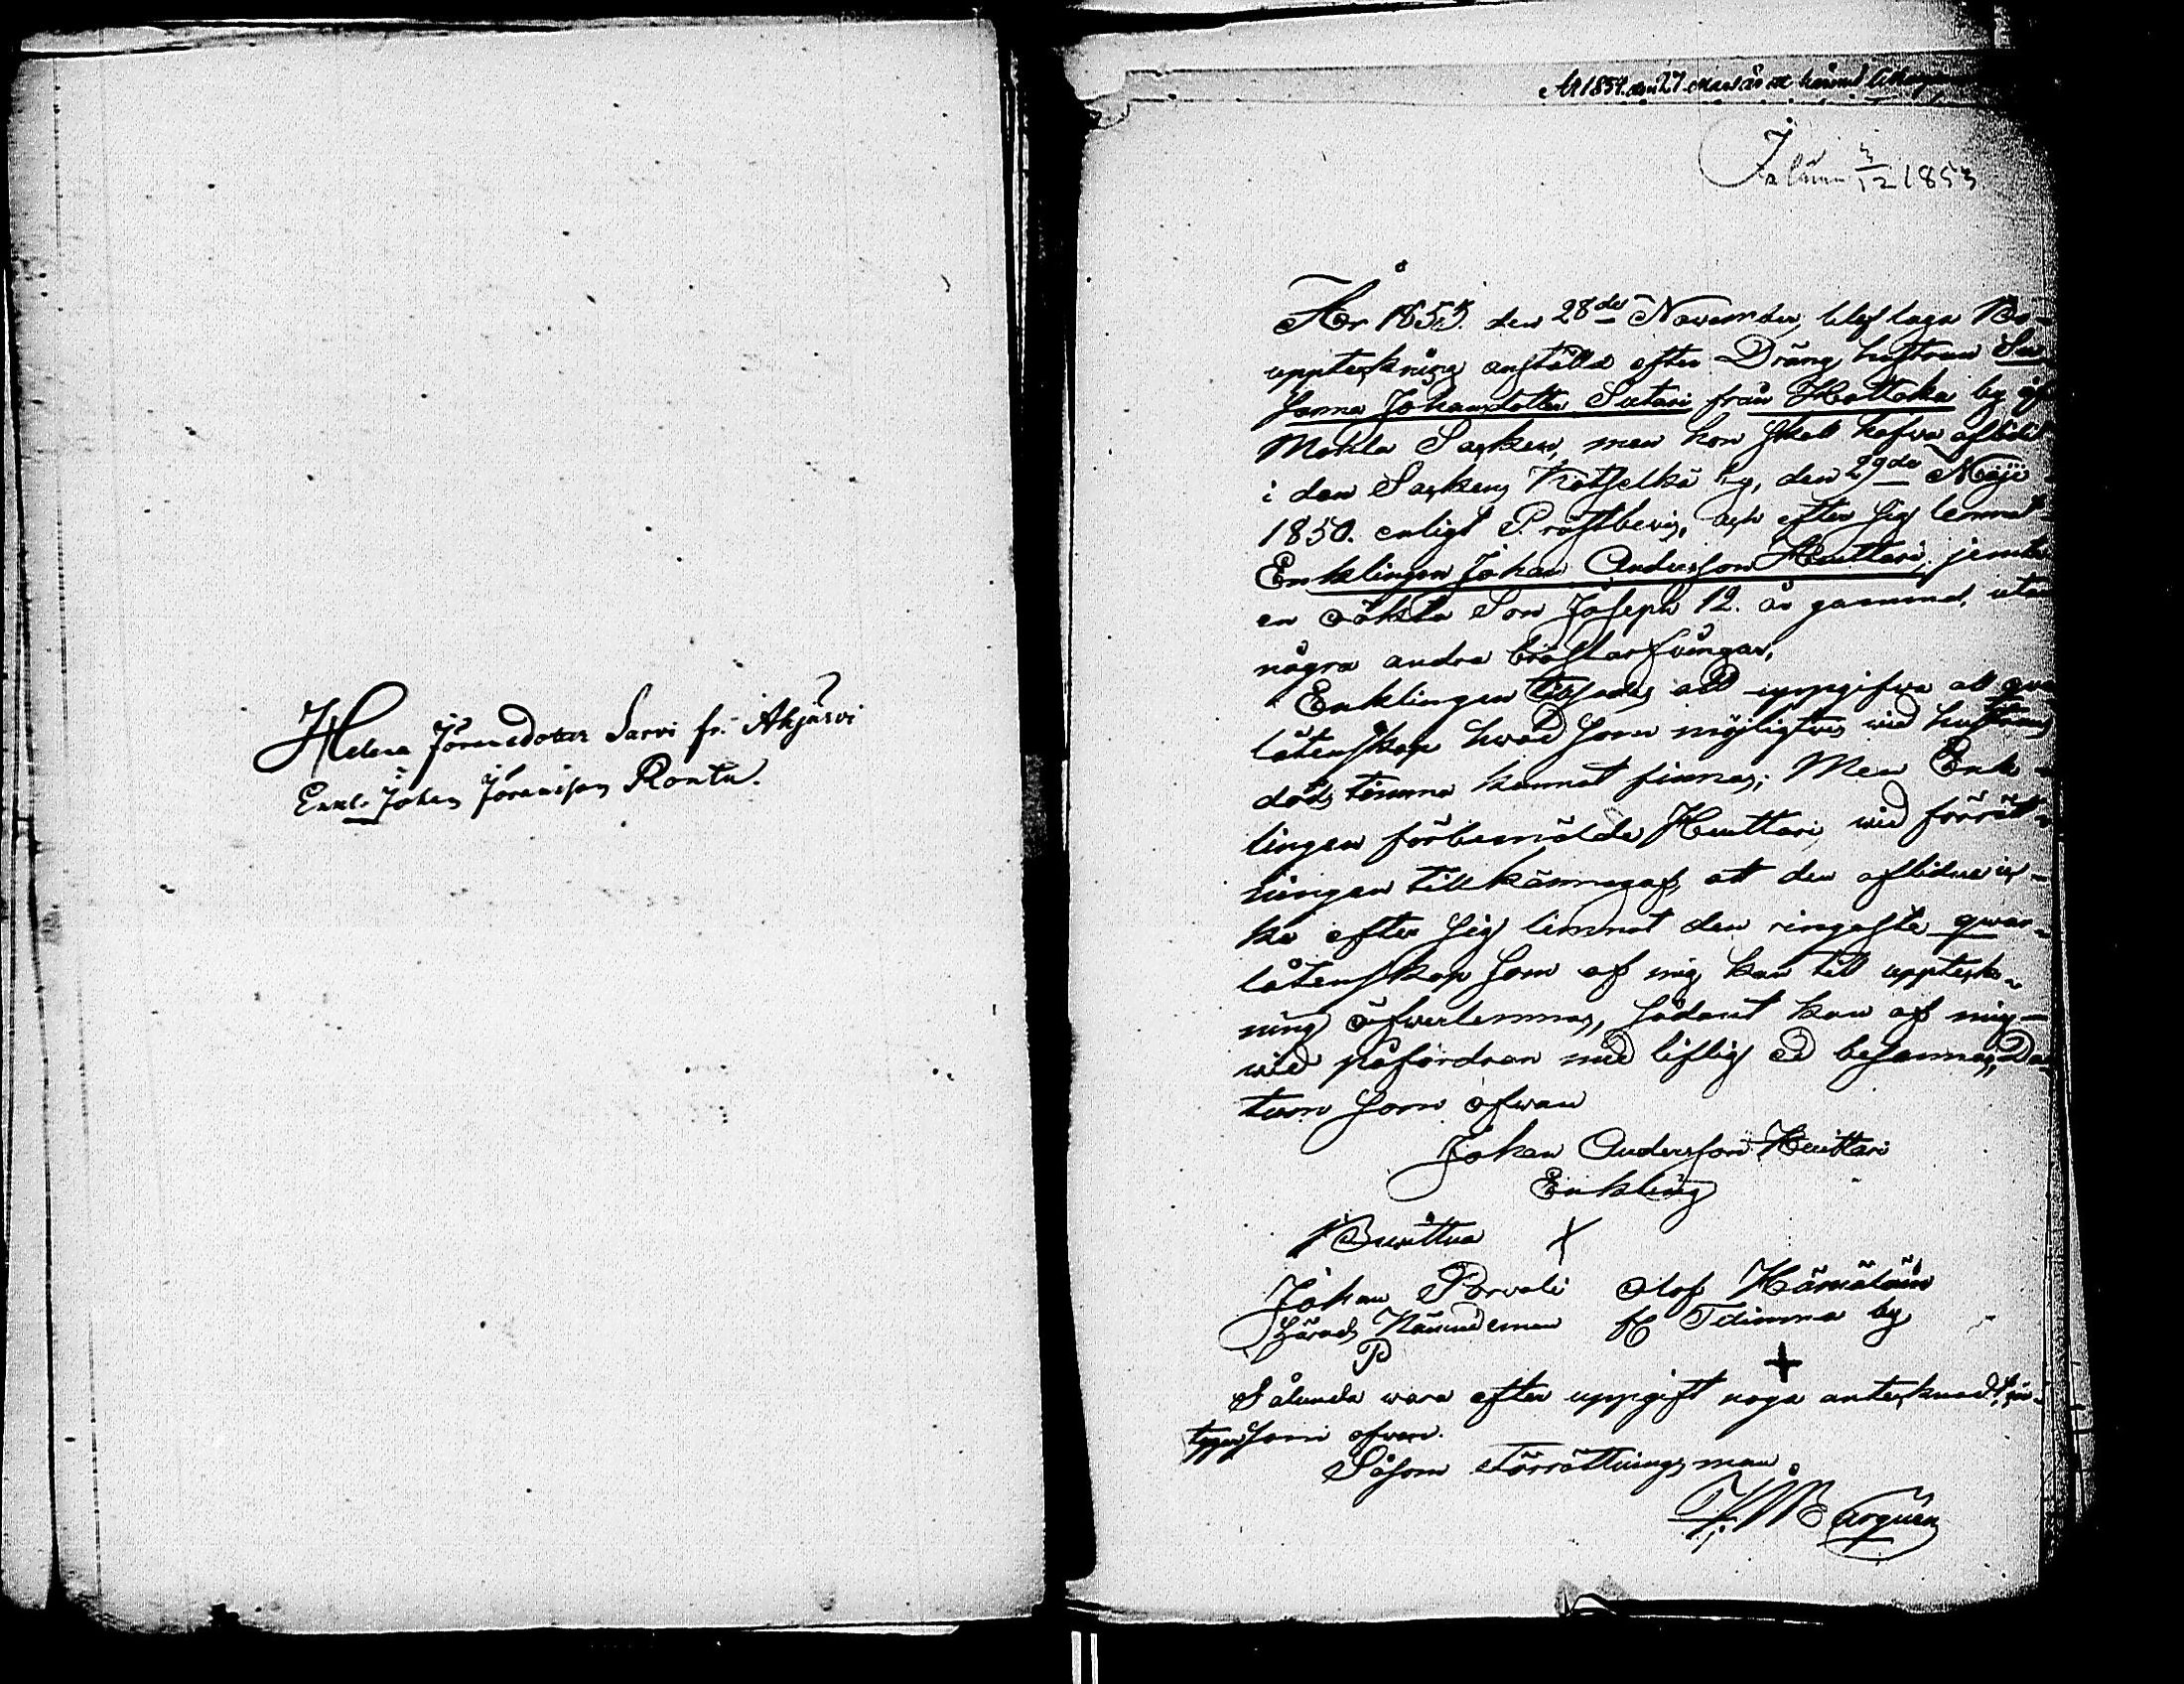 Helena Jöransdotter Sarvi fr. Akjärvi
Enkl. Johan Jöransson Rontu.
År 1854. den 27. Mars är ett härmed
3/12 1853
År 1853. den 28de November, blef laga Bo-
uppteckning anställd efter Dräng hustrun Su
sanna Johansdotter Sutari från Hottoka by af
Mohla Sacken, men hon skall hafva aflidit
i den Sackens Kotselkä by, den 29de Maji
1850. enligt Prästbevis, och efter sig lemnat
Enklingen Johan Andersson Huittari, jemte
en äkta Son Joseph 12. år gammal, utan
några andra bröstarfvingar,
Enklingen tillsades att uppgifva all qvar
låtenskap hvad som möjligtvis vid hustruns
döds timma kunnat finnas; Men Enk-
lingen förbemälde Huittari, vid förrätt-
ningen tillkännagaf, att den aflidne ic-
ke efter sig lemnat den ringaste qvar-
låtenskap som af mig kan till uppteck-
ning öfverlemnas, sådant kan af mig
vid påfordran med liflig ed besannas, Da-
tum som ofvan
Johan Andersson Huittari
Enkling
Bevittna X
Johan Porvali Olof Hämäläin
Härads Nämndeman fr Telimma by
P +
Sålunda vara efter uppgift noga antecknadt, in-
tygar som ofvan.
Såsom Förrättningsman